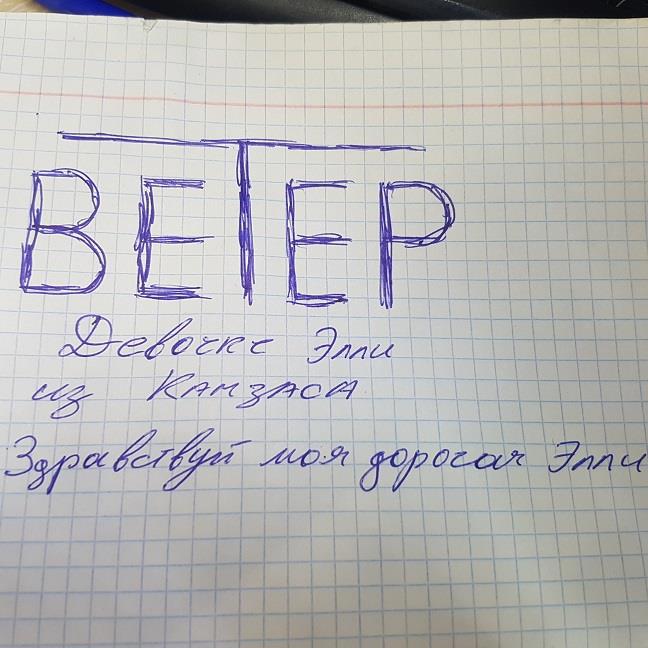 ВЕТЕР
Девочке Элли
из Канзаса
Здравствуй моя дорогая Элли